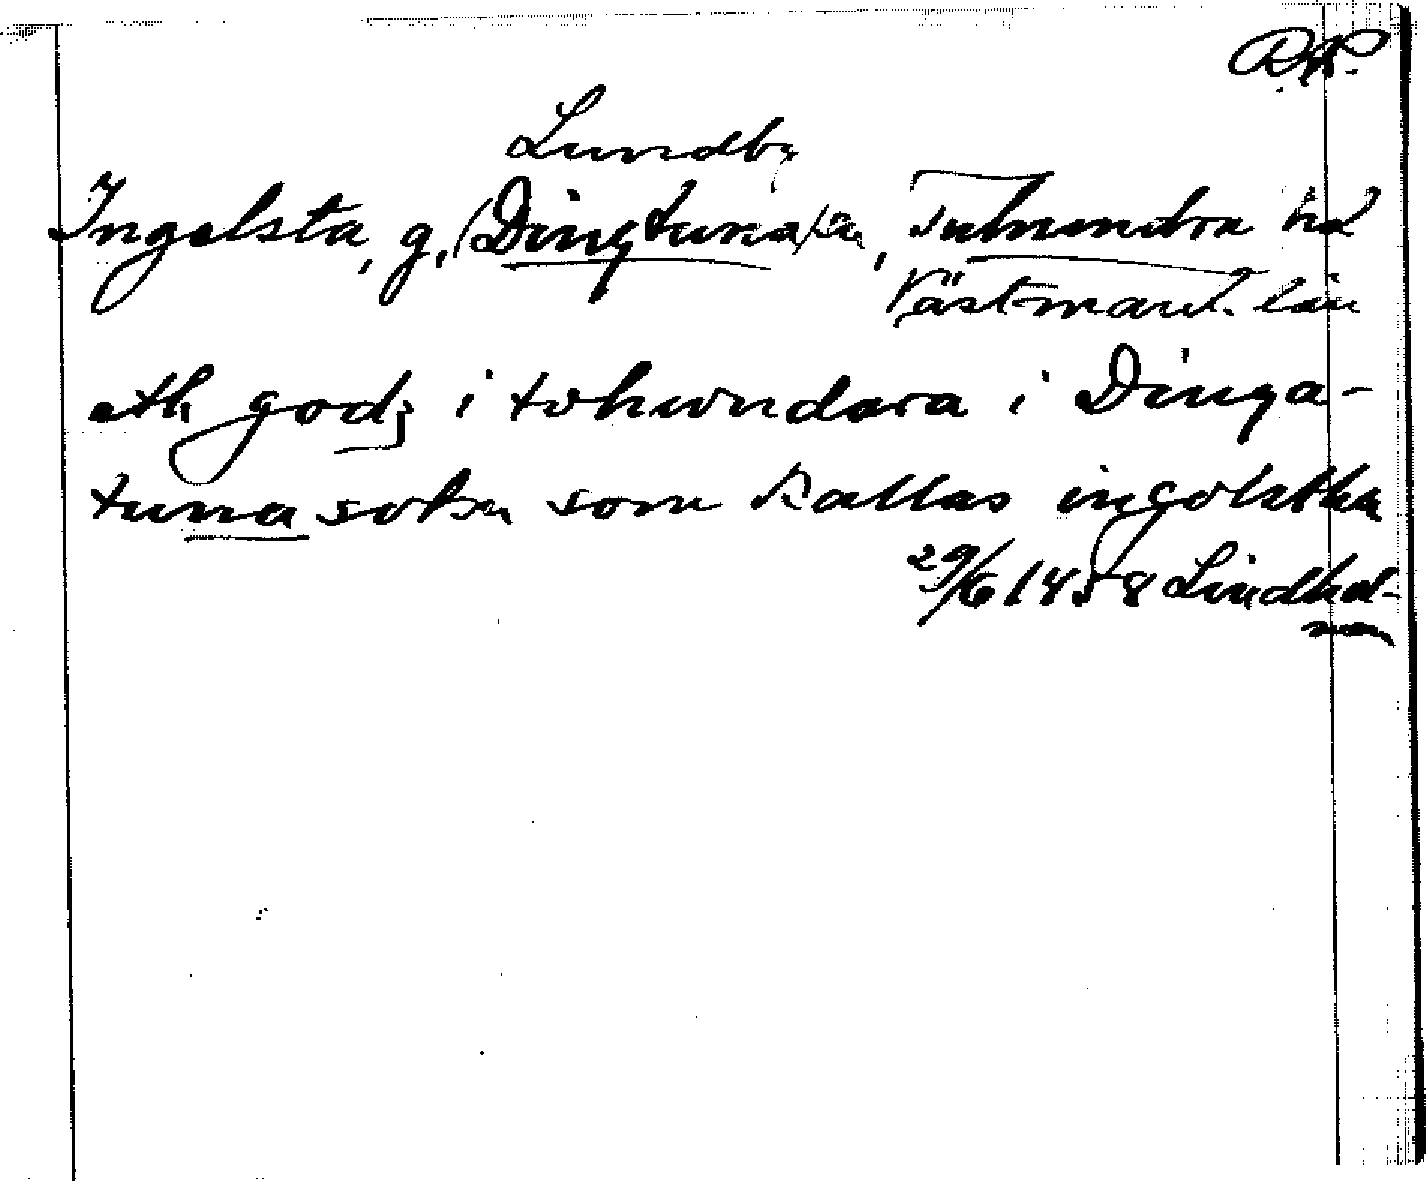 RAP.
Lundby
Ingelsta, g. (Dingtuna) sn, Tuhundra hd
Västmanl. län
eth godz i tvhwndara i Dinga-
tuna sokn som kallas ingolstha
29/6 1458 Lindhol-
men